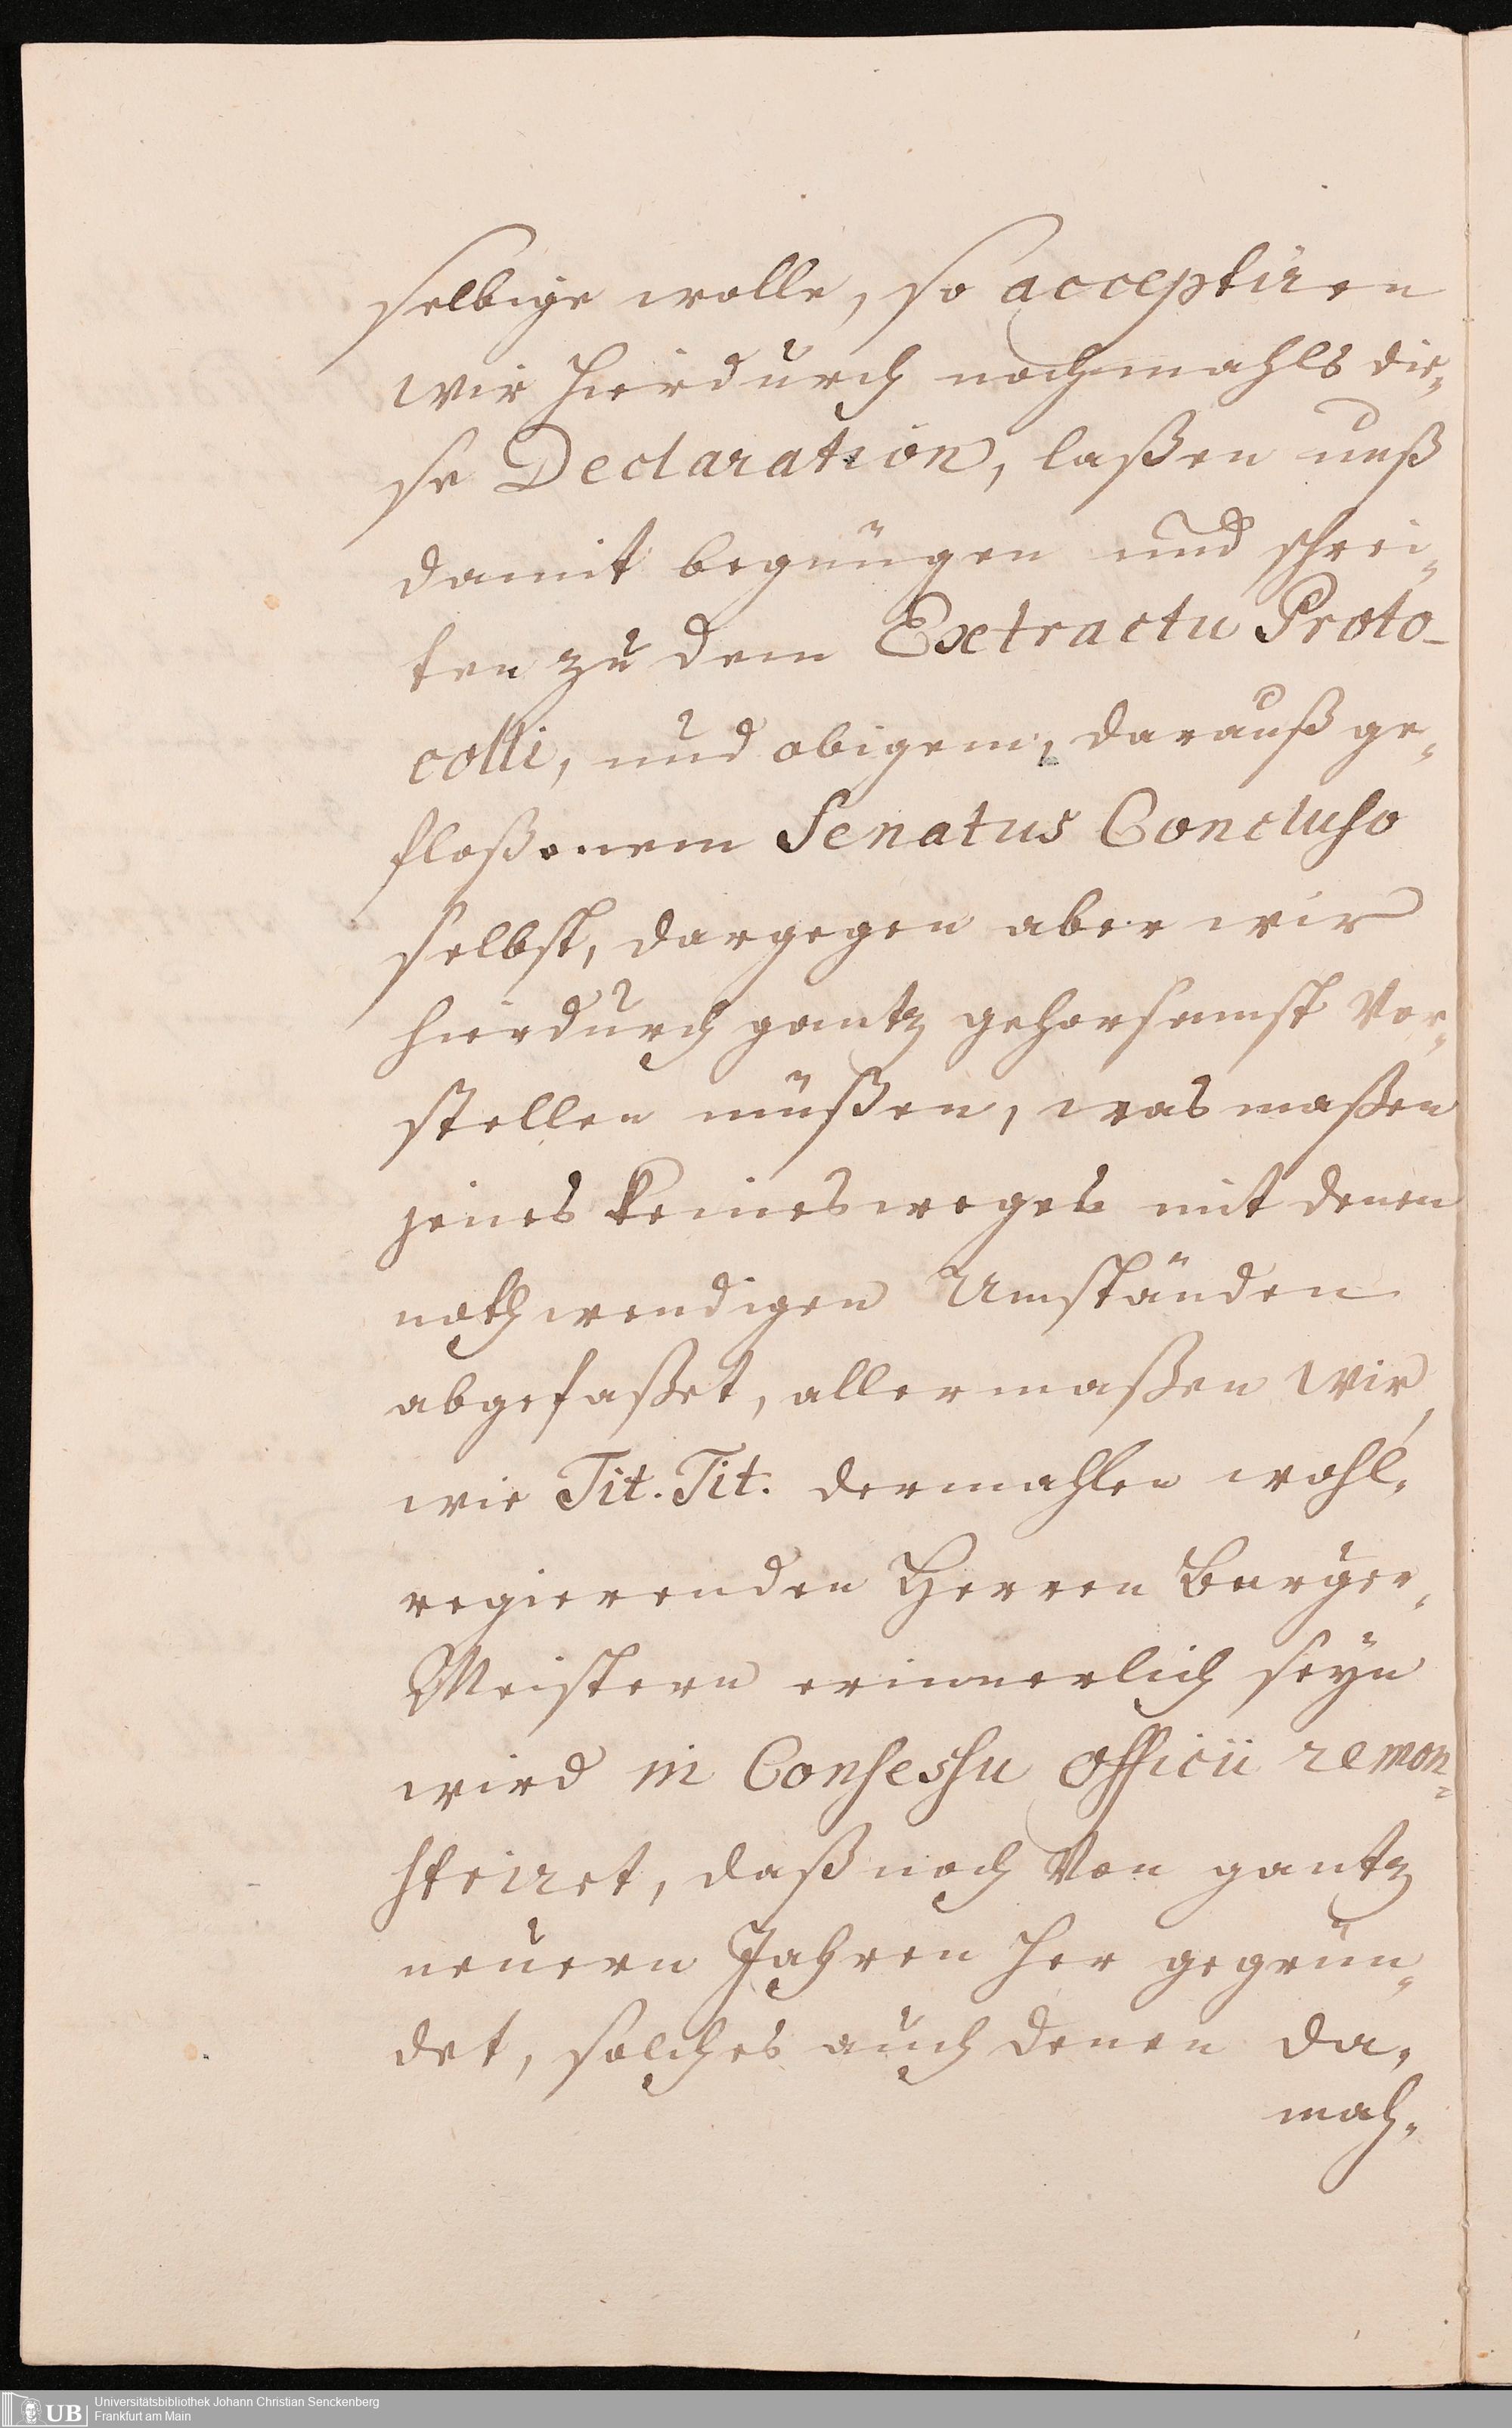 selbige wolle, so acceptiren
wir hierdurch nochmahls die-
se Declaration, laßen unß
damit begnügen und schrei-
ten zu dem Extractu Proto-
colli, und obigem, darauß ge-
floßenem Senatus Concluso
selbst, dargegen aber wir
hierdurch gantz gehorsamst vor-
stellen müßen, was maßen
jenes keinesweges mit denen
nothwendigen Umständen
abgefaßet, allermaßen wir,
wie Tit. Tit. dermahlen wohl-
regierenden Herren Burger-
Meistern erinnerlich seyn
wird in Consessu Officii remon-
striret, daß noch von gantz
neuern Jahren her gegrün-
det, solches auch denen da-
mah-
UB
Universitätsbibliothek Johann Christian Senckenberg
Frankfurt am Main